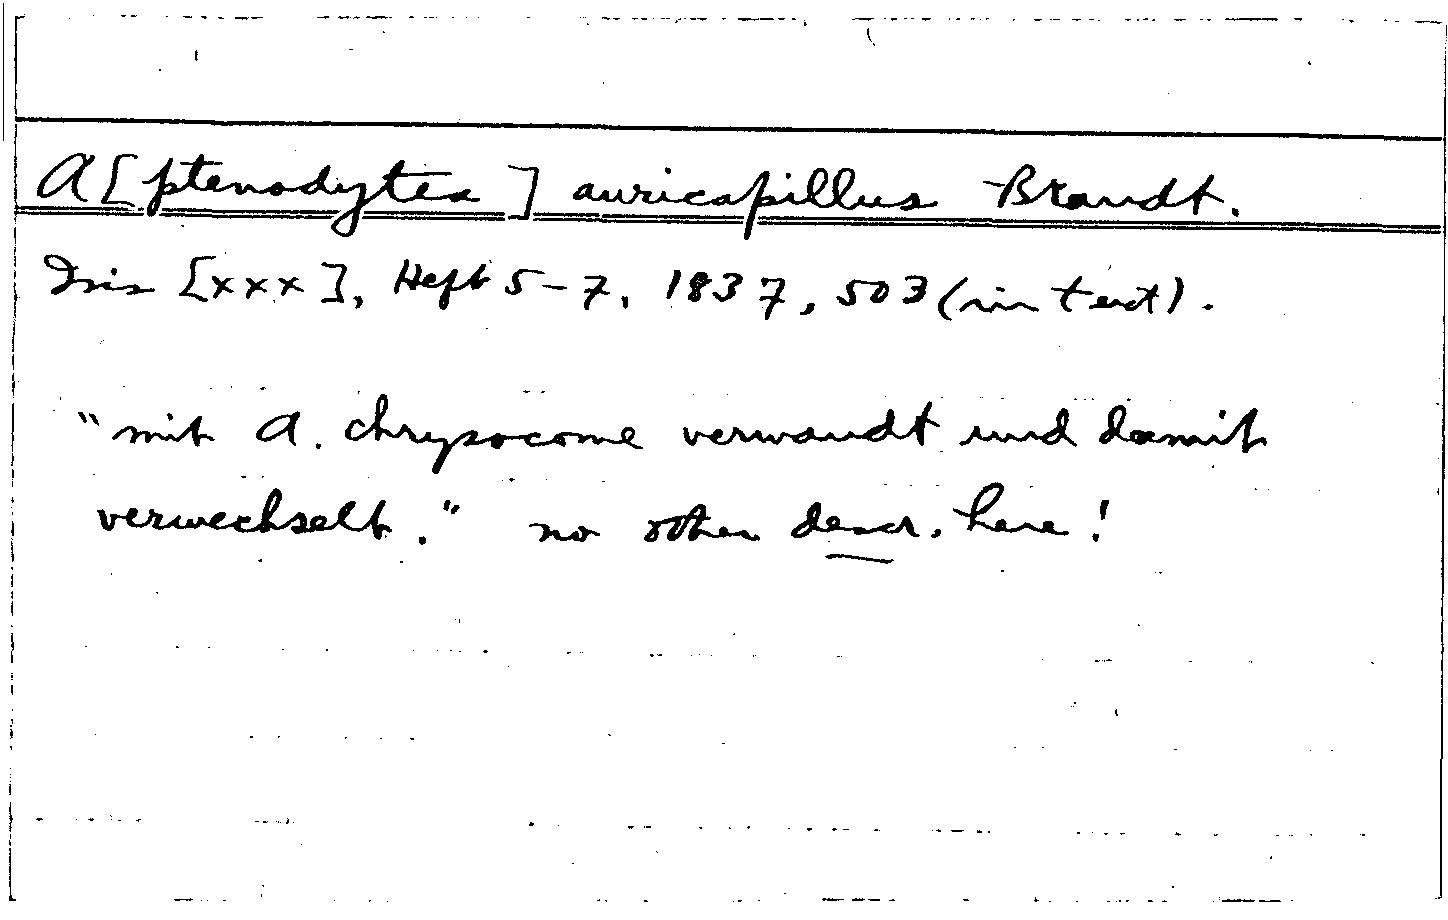 A[ptenodytes] auricapillus Brandt.
Isis [xxx], Heft 5-7, 1837, 503 (in text).
"mit A. chrysocome verwandt und damit
verwechselt." no other descr. here!